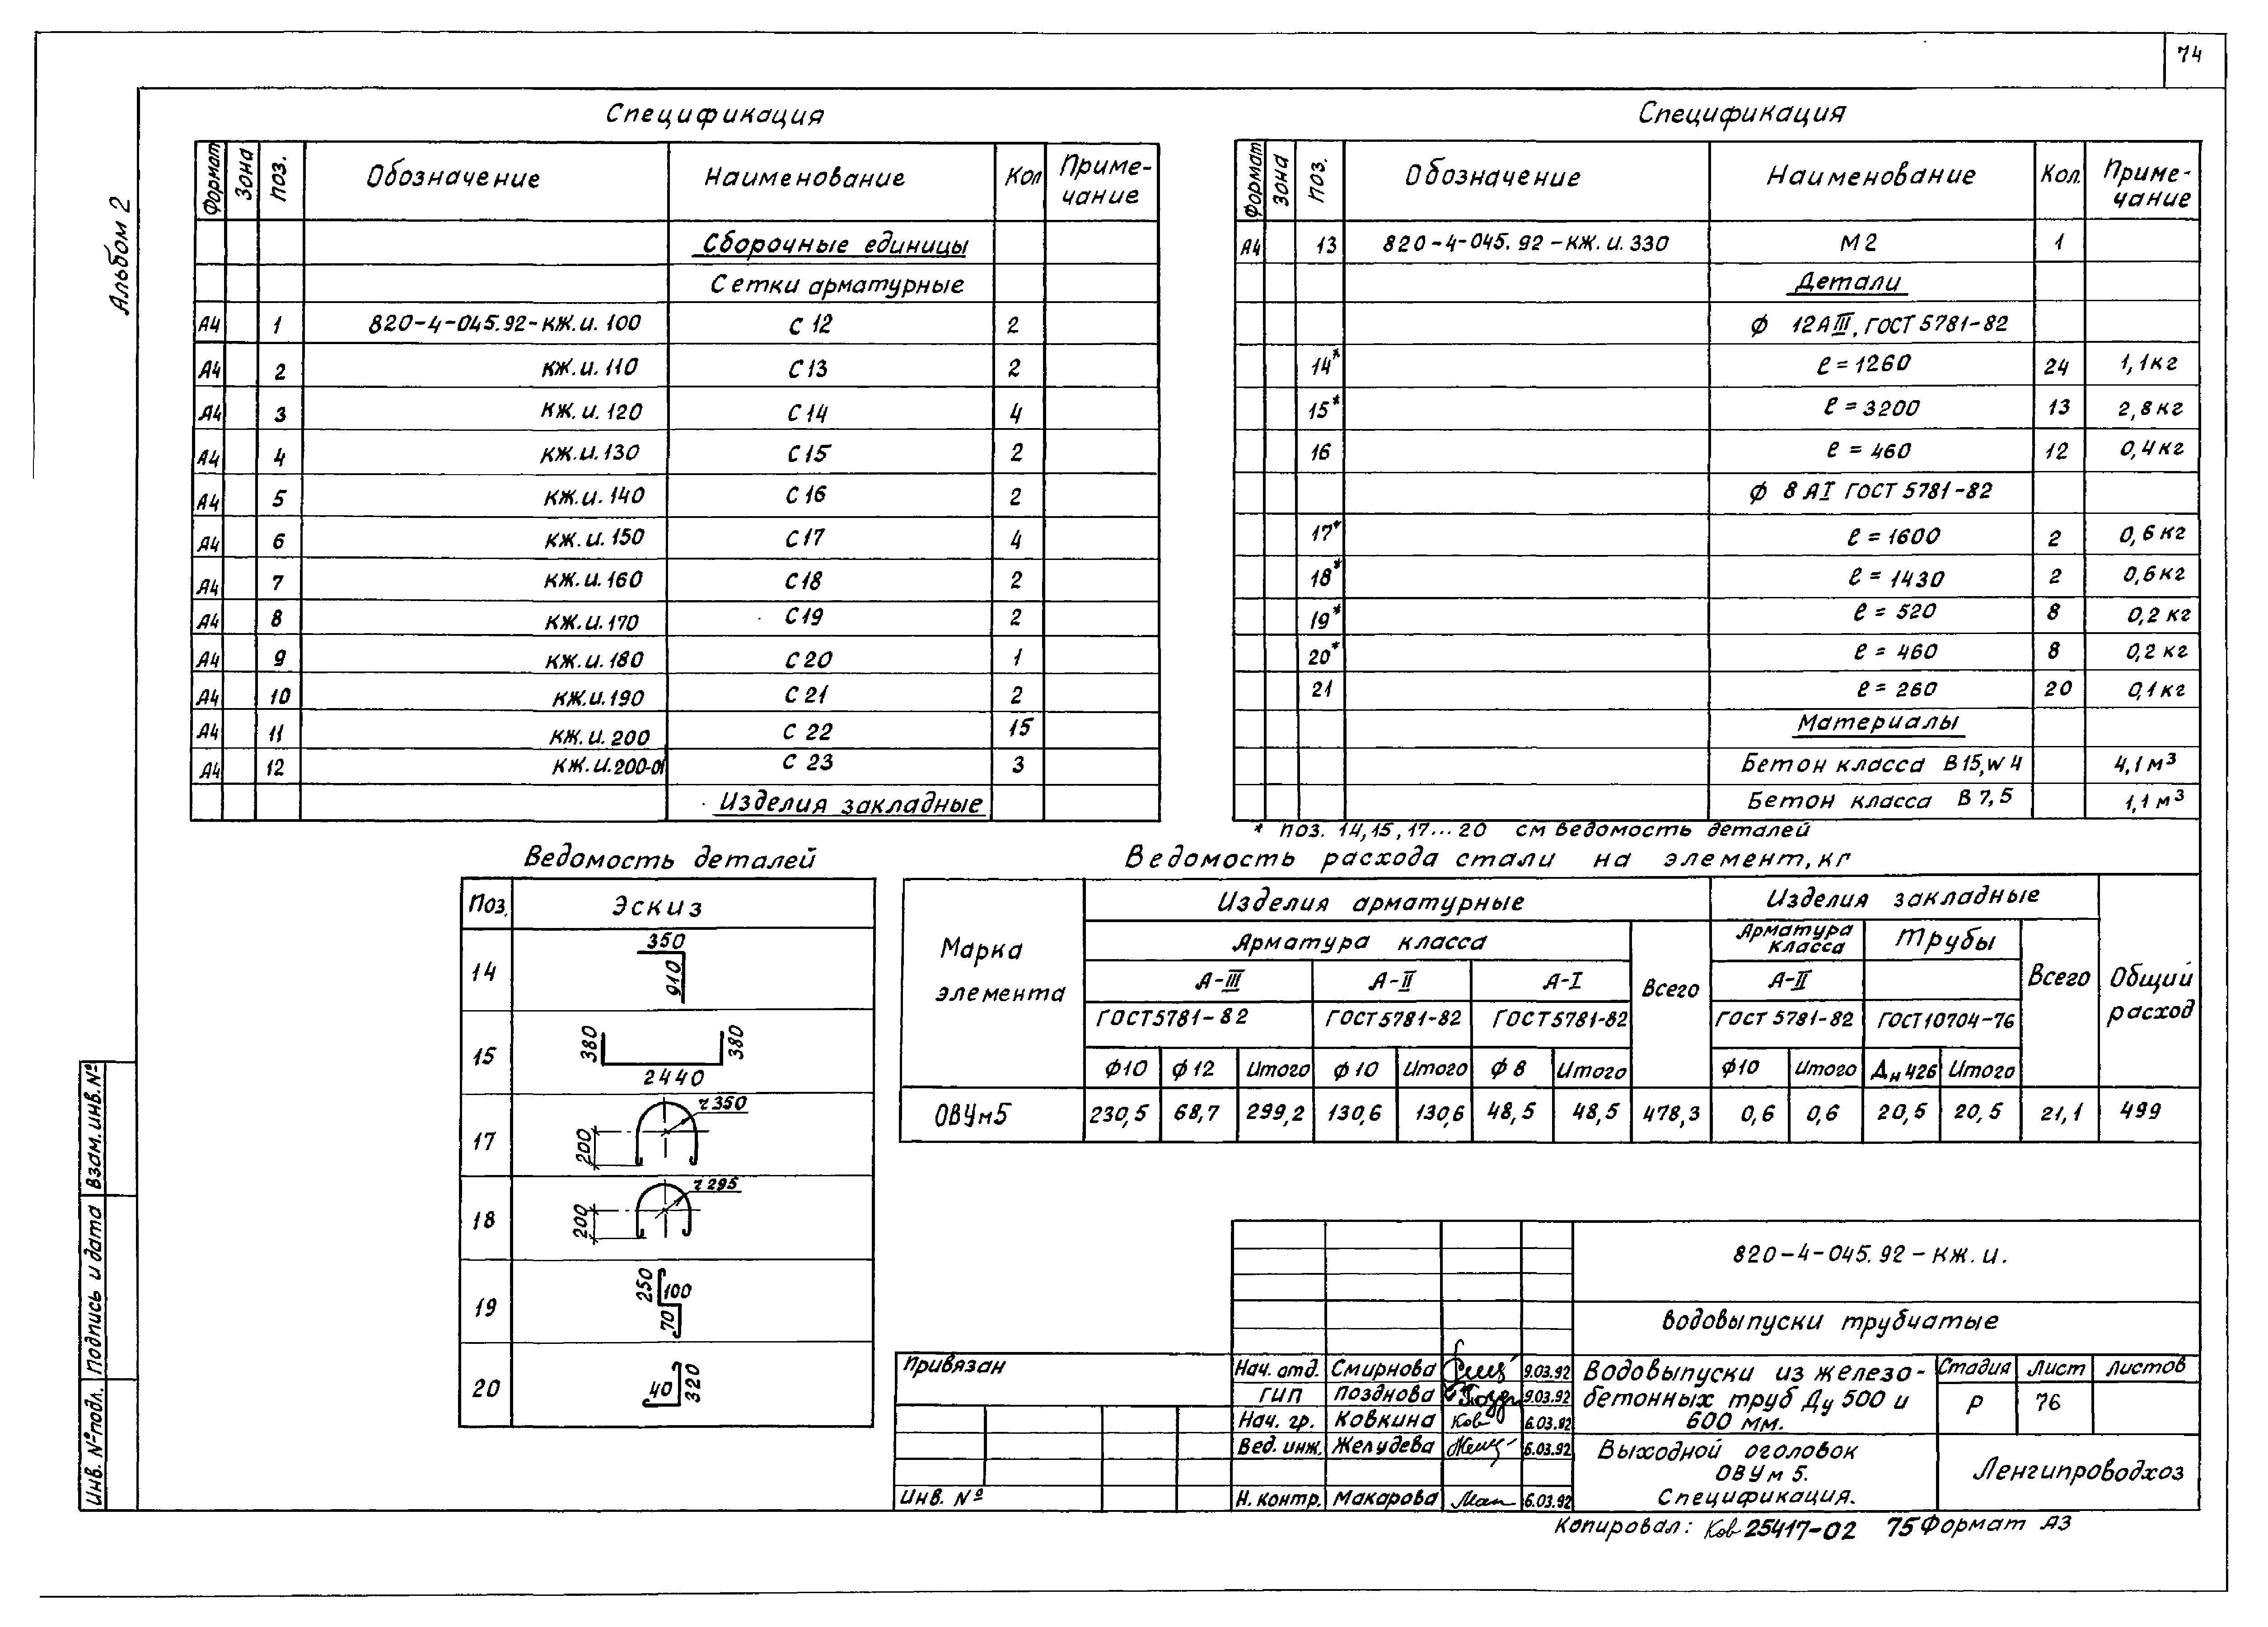 74
Альбом 2
Спецификация
Формат Зона Поз. Обозначение Наименование Кол Приме-чание
Сборочные единицы
Сетки арматурные
А4 1 820-4-045.92-КЖ.И.100 С 12 2
А4 2 КЖ.И.110 С13 2
А4 3 КЖ.И.120 С14 4
А4 4 КЖ.И.130 С15 2
А4 5 КЖ.И.140 С16 2
А4 6 КЖ.И.150 С17 4
А4 7 КЖ.И.160 С18 2
А4 8 КЖ.И.170 С19 2
А4 9 КЖ.И.180 С20 1
А4 10 КЖ.И.190 С21 2
А4 11 КЖ.И.200 С 22 15
А4 12 КЖ.И.200-01 С 23 3
Изделия закладные
Спецификация
Формат Зона Поз. Обозначение Наименование Кол. Приме-чание
А4 13 820-4-045.92-КЖ.И.330 М2 1
Детали
ф 12АIII, ГОСТ 5781-82
14* ℓ=1260 24 1,1кг
15* ℓ=3200 13 2,8кг
16 ℓ=460 12 0,4кг
ф 8 АI ГОСТ 5781-82
17* ℓ=1600 2 0,6кг
18* ℓ=1430 2 0,6кг
19* ℓ=520 8 0,2кг
20* ℓ=460 8 0,2кг
21 ℓ=260 20 0,1кг
Материалы
Бетон класса В15,W4 4,1м³
Бетон класса В7,5 1,1м³
* поз. 14,15,17...20 см ведомость деталей
Ведомость деталей
Поз. Эскиз
14 350 910
15 380 2440 380
17 200 r350
18 200 r295
19 250 100 70
20 40 320
Ведомость расхода стали на элемент, кг
Марка элемента
Изделия арматурные Изделия закладные
Арматура класса Всего Арматура класса Трубы Всего Общий расход
А-III А-II А-I А-II
ГОСТ5781-82 ГОСТ5781-82 ГОСТ5781-82 ГОСТ 5781-82 ГОСТ10704-76
ф10 ф12 Итого ф10 Итого ф8 Итого ф10 Итого Дн426 Итого
ОВУм5 230,5 68,7 299,2 130,6 130,6 48,5 48,5 478,3 0,6 0,6 20,5 20,5 21,1 499
820-4-045.92-КЖ.И.
Водовыпуски трубчатые
Привязан
Инв. №
Нач. отд. Смирнова 9.03.92
ГИП Позднова 9.03.92
Нач. гр. Ковкина Ков 6.03.92
Вед. инж. Желудева 6.03.92
Н. контр. Макарова Мак 6.03.92
Водовыпуски из железо-
бетонных труб Ду 500 и
600 мм.
Стадия Лист Листов
Р 76
Выходной оголовок
ОВУм 5.
Спецификация.
Ленгипроводхоз
Копировал: Ков 25417-02 75 Формат А3
Инв. № подл. Подпись и дата Взам. инв. №